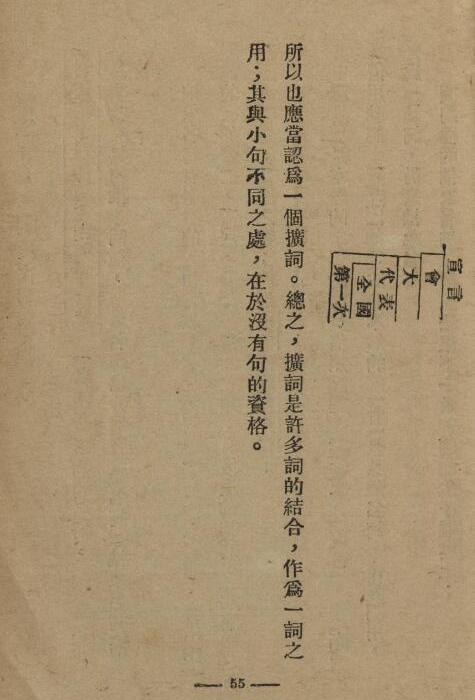 宣言
會
大
代表
全國
第一次
所以也應當認爲一個擴詞。總之，擴詞是許多詞的結合，作爲一詞之
用；其與小句不同之處，在於沒有句的資格。
— 55 —